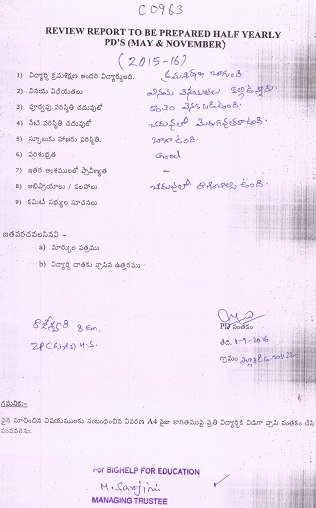 C0963
REVIEW REPORT TO BE PREPARED HALF YEARLY
PD'S (MAY & NOVEMBER)
(2015-16)
1) విద్యార్థి క్రమశిక్షణ అందరి విద్యార్థులది. క్రమశిక్షణ బాగుంది
2) వినయ విధేయతలు వినయ విధేయతలు కల్గి ఉన్నాడు.
3) పూర్వపు పరిస్థితి చదువులో కొంచెం వెనకబడి ఉంది.
4) నేటి పరిస్థితి చదువులో చదువులో మెరుగైనది.
5) స్కూలుకు హాజరు పరిస్థితి. బాగా ఉంది.
6) పరిశుభ్రత Good
7) ఇతర అంశములలో ప్రావీణ్యత –
8) అభిప్రాయాలు / సలహాలు చదువులో ఉంది.
9) కమిటీ సభ్యుల సూచనలు
జతపరచవలసినవి –
a) మార్కుల పత్రము
b) విద్యార్థి దాతకు వ్రాసిన ఉత్తరము
8 Em,
ZP(Girls) H.S.
PD సంతకం
తేది. 1-9-2016
గ్రామం
గమనిక:-
పైన సూచించిన విషయములకు సంబంధించిన వివరణ A4 సైజు కాగితముపై ప్రతి విద్యార్థికి విడిగా వ్రాసి సంతకం చేసి
పంపవలెను.
For BIGHELP FOR EDUCATION
M. Sarojini
MANAGING TRUSTEE